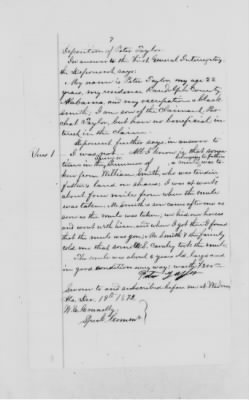 7
Deposition of Peter Taylor
In answer to the First General Interrogatory
the deponent says:
My name is Peter Taylor, my age 22
years, my residence Randolph County,
Alabama, and my occupation a black
smith; I am son of the Claimant,
Taylor, but have no beneficial in-
terest in the Claim.
Deponent further says in answer to
I was not All I know is, that some
time in the Summer of a mule was ta-
ken from William Smith, who was tendin
fathers land on shares; I was at work
about four miles from where the mule
was taken. Mr Smith came after me as
soon as the mule was taken, we hid our horses
and went with him, and when I got there I found
that the mule was gone; Mr Smith & the family
told me that some U.S. Cavalry took the mule.
The mule was about 6 years old, large and
in good condition
Peter Taylor
Sworn to and subscribed before me at
Ala. Dec. 18th 1872
Special Commr